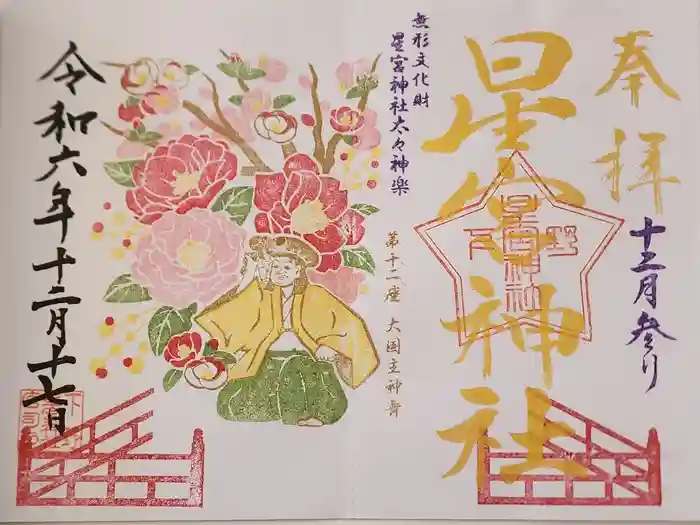 奉拝
十二月参り
星宮神社
星宮神社
無形文化財
星宮神社太々神楽
第十二座 大国主神舞
令和六年十二月十七日